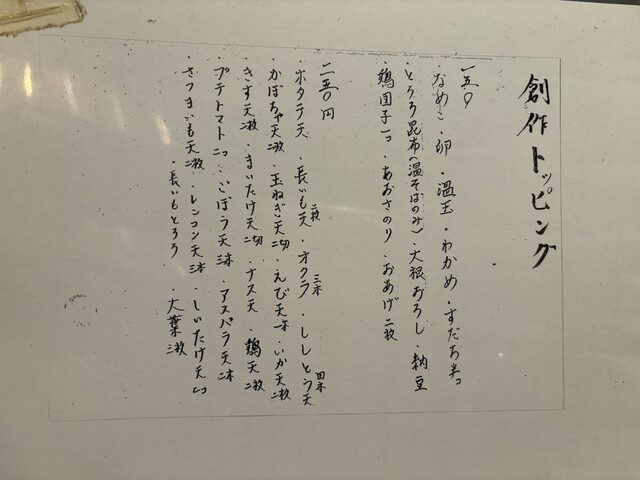 創作トッピング
一五〇
・なめこ・卵・温玉・わかめ・すだち半コ
・とろろ昆布(温そばのみ)・大根おろし・納豆
・鶏団子一コ・あおさのり・おあげ二枚
二五〇円
・ホタテ天・長いも天二枚・オクラ三本・ししとう天四本
・かぼちゃ天二枚・玉ねぎ天二切・えび天一本・いか天二枚
・きす天二枚・まいたけ天二切・ナス天・鶏天二枚
・プチトマト二コ・ごぼう天三本・アスパラ天二本
・さつまいも天二枚・レンコン天三本・しいたけ天一コ
・長いもとろろ・大葉三枚